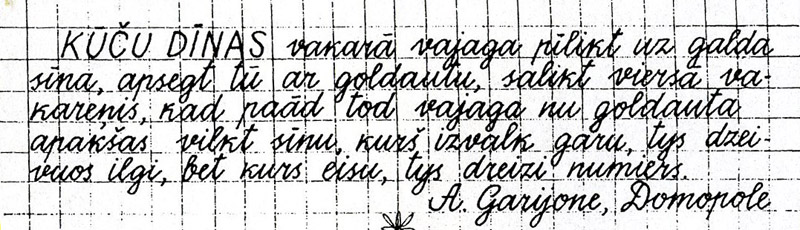 KŪČU DĪNAS vakarā vajaga pīlikt uz galda
sīna, apsegt tū ar goldautu, salikt viersā va-
kareņis, kad paād tod vajaga nu goldauta
apakšas vilkt sīnu, kurš izvalk garu, tys dzei-
vuos ilgi, bet kurs eisu, tys dreizi numiers.
A. Garijone, Domopole